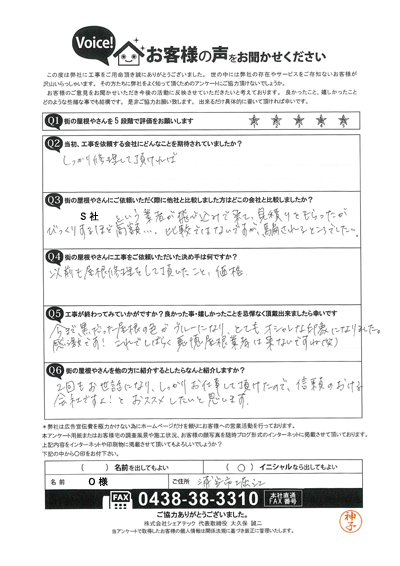 Voice!
お客様の声をお聞かせください
この度は弊社に工事をご用命頂き誠にありがとうございました。 世の中には弊社の存在やサービスをご存知ないお客様が
沢山いらっしゃいます。 その方たちに弊社をよく知って頂くためのアンケートにご協力頂けないでしょうか。
お客様のご意見をお聞かせいただき今後の活動に反映させていただきたいと考えております。 良かったこと、嬉しかったこと
どのような些細な事でも結構です。 是非ご協力お願い致します。 出来るだけ具体的に書いて頂ければ幸いです。
Q1 街の屋根やさんを5段階で評価をお願いします
★ ★ ★ ★ ★
Q2 当初、工事を依頼する会社にどんなことを期待されていましたか?
しっかり修理して頂ければ
Q3 街の屋根やさんにご依頼いただく際に他社と比較しました方はどこの会社と比較しましたか?
S社 という業者が飛び込みで来て、見積りをもらったが
びっくりするほど高額…。 比較ではないですが、騙されるところでした。
Q4 街の屋根やさんに工事をご依頼いただいた決め手は何ですか?
以前も屋根修理をして頂いたこと、価格
Q5 工事が終わってみていかがですか?良かった事・嬉しかったことを忌憚なく頂戴出来ましたら幸いです
今まで黒だった屋根の色がグレーになり、とてもオシャレな印象になりました。
感激です! これでしばらく悪徳屋根業者は来ないですね(笑)
Q6 街の屋根やさんを他の方に紹介するとしたらなんと紹介しますか?
2回もお世話になり、しっかりお仕事して頂けたので、信頼のおける
会社ですよ!とおススメしたいと思います。
*弊社は広告宣伝費を極力かけない為にホームページだけを頼りにお客様への営業活動を行っております。
本アンケート用紙またはお客様宅の調査風景や施工状況、お客様の顔写真を随時ブログ形式のインターネットに掲載させて頂いております。
上記内容をインターネットや印刷物に掲載させて頂いてもよろしいでしょうか?
下記の中から○印をお付け下さい。
( ) 名前を出してもよい
( ○ ) イニシャルなら出してもよい
名前
O 様
ご住所
浦安市堀江
FAX 0438-38-3310 本社直通 FAX番号
ご協力ありがとうございました。
株式会社シェアテック 代表取締役 大久保 誠二
当アンケートで取得したお客様の個人情報は関係法規に基づき厳正に管理いたします。
神子